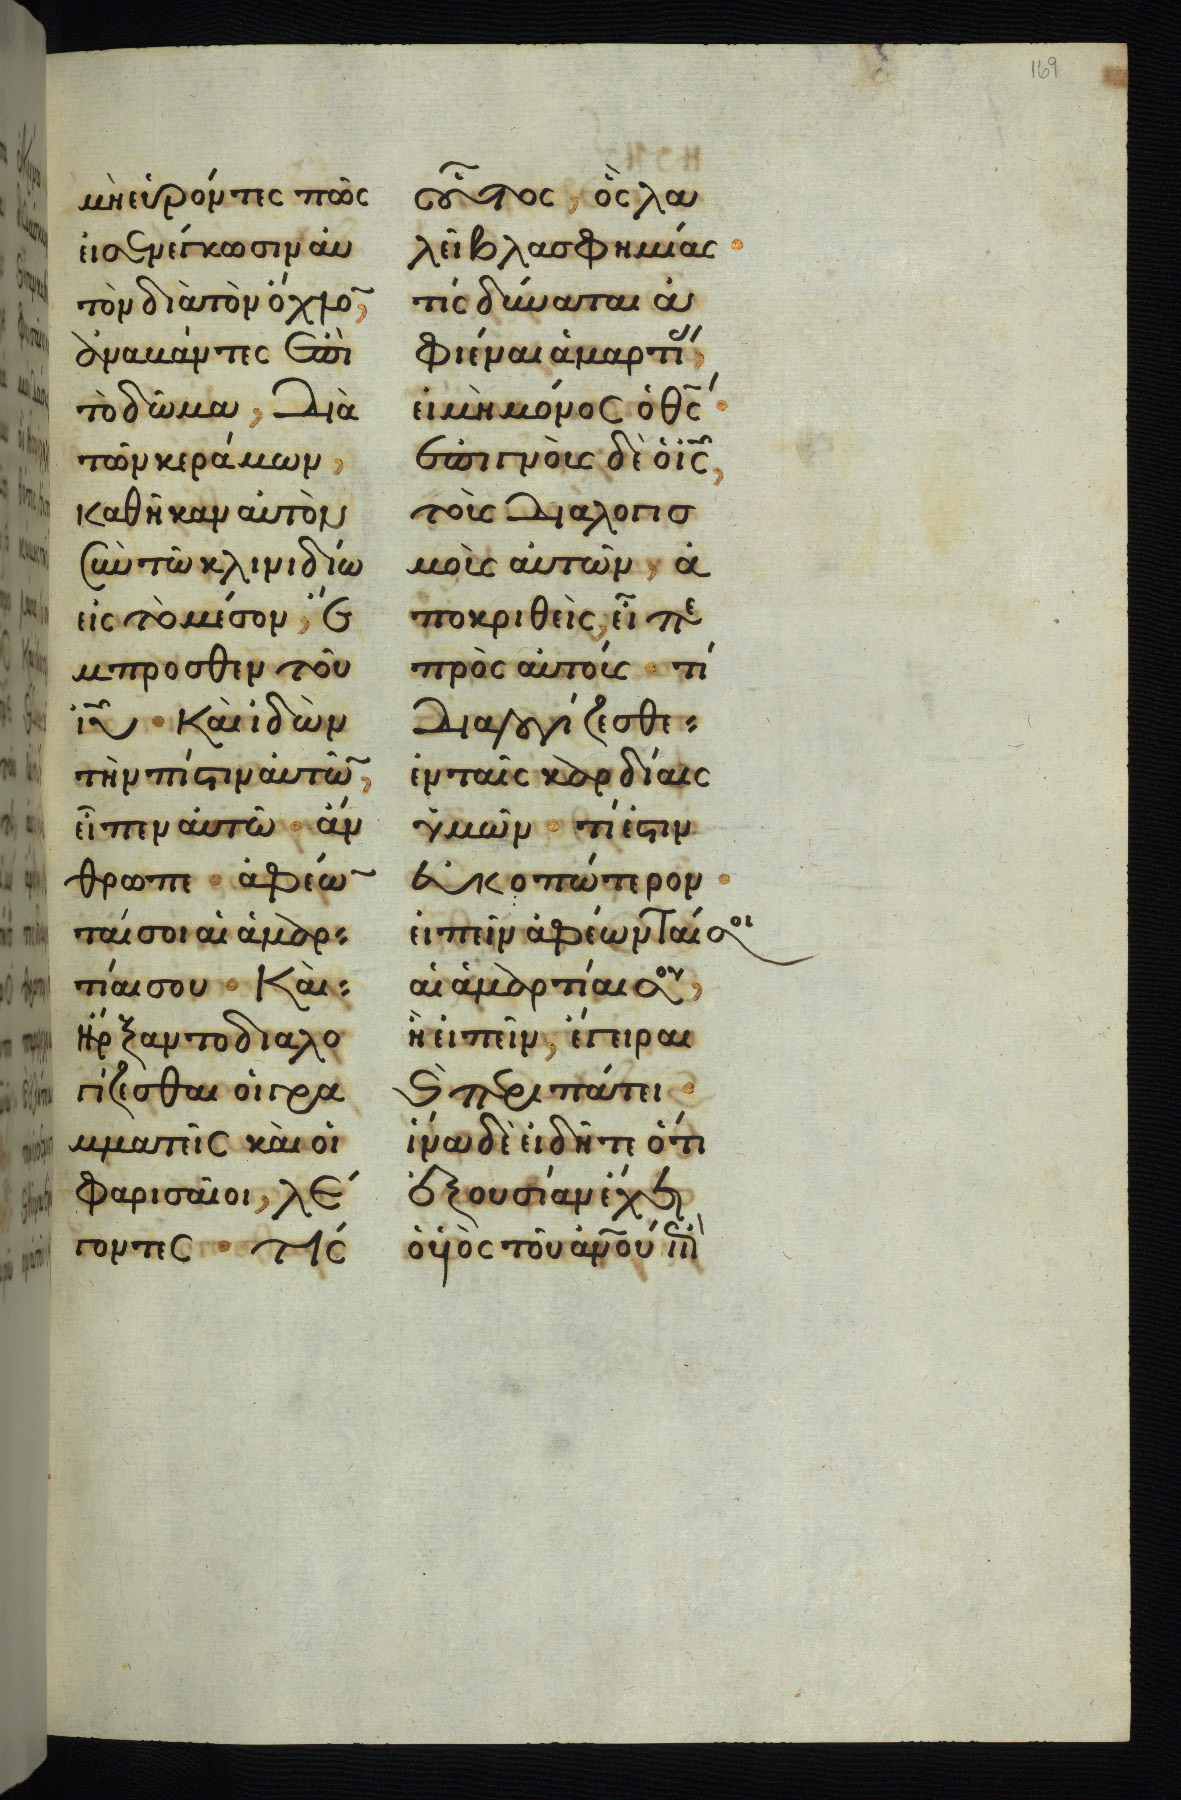 169
μὴ εὑρόντες πῶς
εἰσενέγκωσιν αὐ
τὸν διὰ τὸν ὄχλο̅,
ἀναβάντες ἐπὶ
τὸ δῶμα, διὰ
τῶν κεράμων,
καθῆκαν αὐτὸν
σὺν τῶ κλινιδίω
εἰς τὸ μέσον, ἔ
μπροσθεν τοῦ
ἰ̅υ · Καὶ ἰδὼν
τὴν πίστιν αὐτῶ̅,
εἶπεν αὐτῶ · ἄν
θρωπε · ἀφέω̅
ταί σοι αἱ ἁμαρ
τίαι σου · Καὶ
ἤρξαντο διαλο
γίζεσθαι οἱ γρα
μματεῖς καὶ οἱ
φαρισαῖοι, λέ
γοντες · τίς
οὗτος, ὃς λα
λεῖ βλασφημίας ·
τίς δύναται ἀ
φιέναι ἁμαρτί,
εἰ μὴ μόνος ὁ θ̅ς ·
ἐπιγνοὺς δὲ ὁ ἰ̅ς,
τοὺς διαλογισ
μοὺς αὐτῶν, ἀ
ποκριθεὶς, εἶπε
πρὸς αὐτούς · τί
διαλογίζεσθε
ἐν ταῖς καρδίαις
ὑμῶν · τί ἐστιν
εὐκοπώτερον ·
εἰπεῖν ἀφέωνταί σοι
αἱ ἁμαρτίαι σου,
ἢ εἰπεῖν, ἔγειραι
καὶ περιπάτει ·
ἵνα δὲ εἰδῆτε ὅτι
ἐξουσίαν ἔχει
ὁ υἱὸς τοῦ ἀ̅ν̅ου ἐπὶ